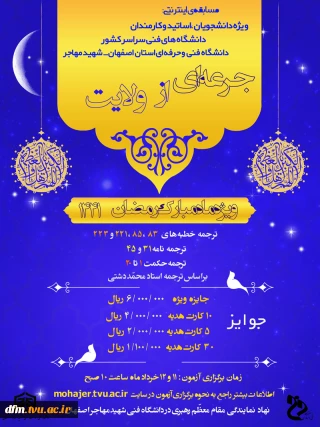 مسابقه‌ی اینترنتی:
ویژه دانشجویان، اساتید و کارمندان
دانشگاه های فنی سراسر کشور
دانشگاه فنی و حرفه ای استان اصفهان - شهید مهاجر
جرعه ای از ولایت
ویژه ماه مبارک رمضان ۱۴۴۱
ترجمه خطبه های ۸۳، ۸۵، ۲۲۱ و ۲۲۳
ترجمه نامه ۳۱ و ۴۵
ترجمه حکمت ۱ تا ۲۰
براساس ترجمه استاد محمد دشتی
جوایز
جایزه ویژه ۶/۰۰۰/۰۰۰ ریال
۱۰ کارت هدیه ۴/۰۰۰/۰۰۰ ریال
۵ کارت هدیه ۲/۰۰۰/۰۰۰ ریال
۳۰ کارت هدیه ۱/۱۰۰/۰۰۰ ریال
زمان برگزاری آزمون: ۱۱ و ۱۲ خرداد ماه ساعت ۱۰ صبح
اطلاعات بیشتر راجع به نحوه برگزاری آزمون در سایت mohajer.tvu.ac.ir
نهاد نمایندگی مقام معظم رهبری در دانشگاه فنی شهید مهاجر اصفهان
dfm.tvu.ac.ir